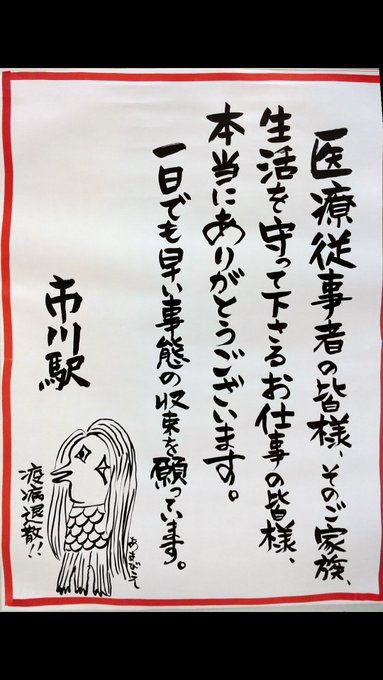 医療従事者の皆様、そのご家族、
生活を守って下さるお仕事の皆様、
本当にありがとうございます。
一日でも早い事態の収束を願っています。
市川駅
あまびこえ
疫病退散!!